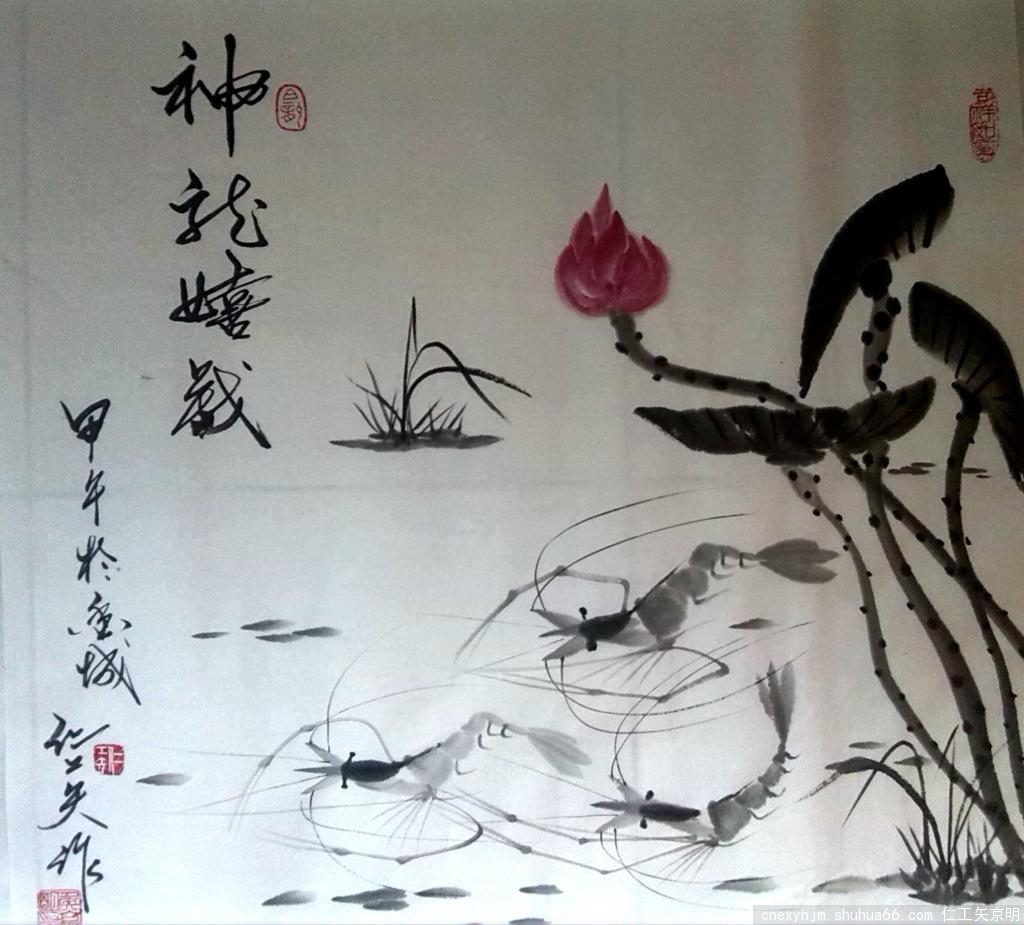 神龙嬉戏
甲午於香城
仁工矢作
吉祥如意
cnexyhjm.shuhua66.com 仁工矢京明